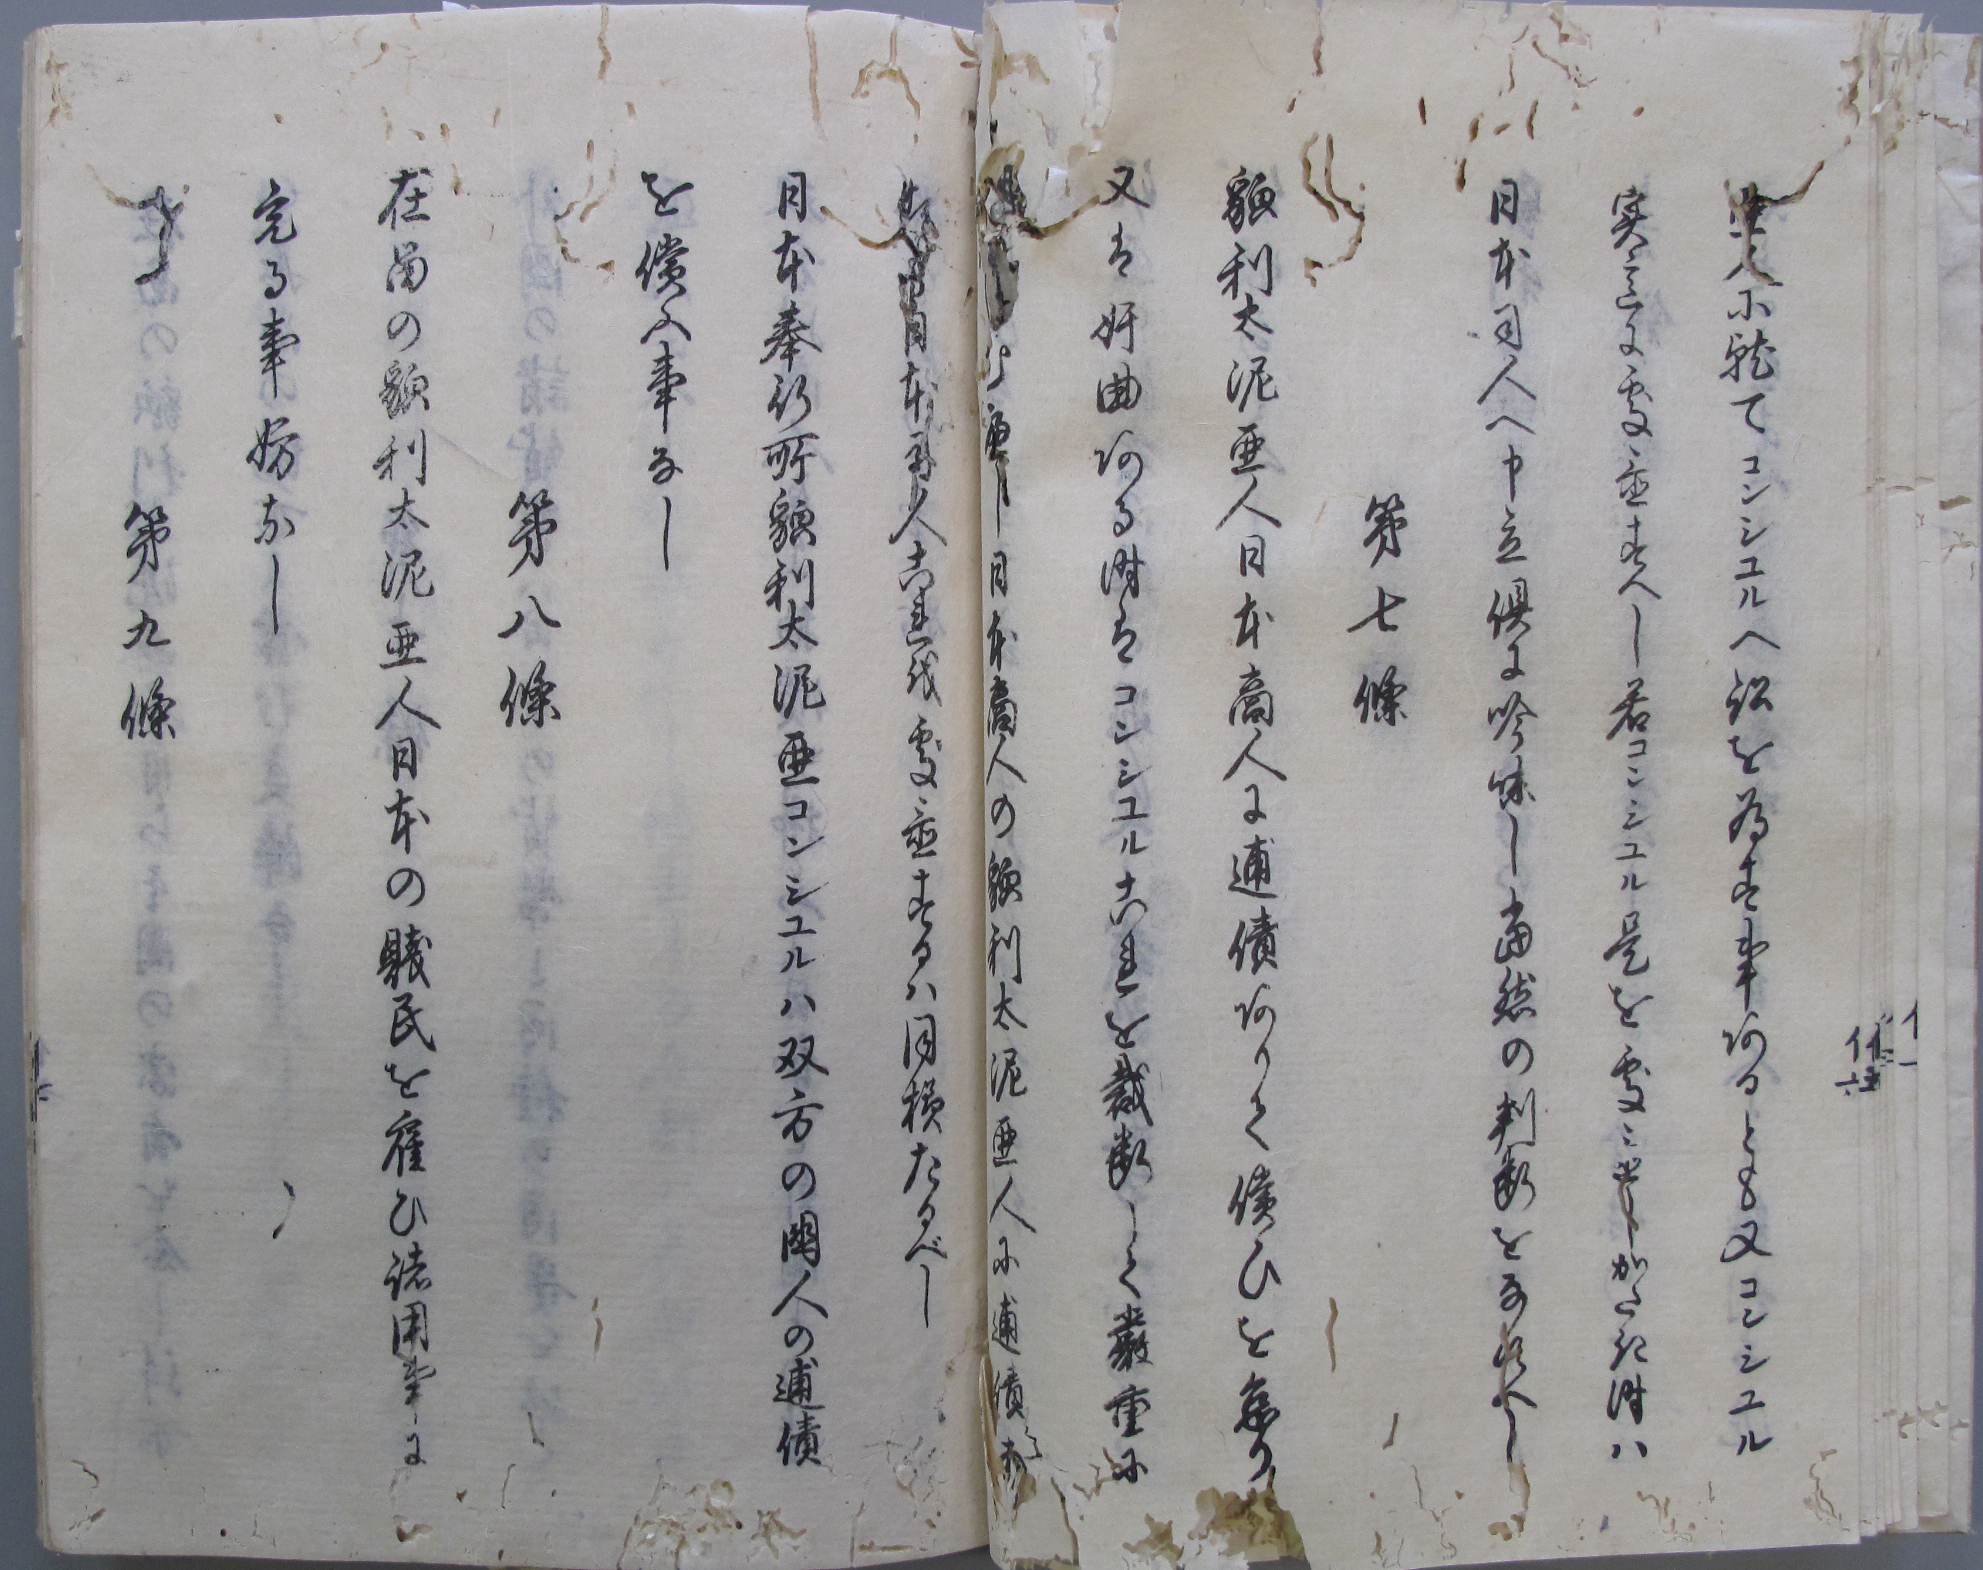 亜人に就てコンシユルへ訟を為す事ある とも又コンシユル
実意に処置すへし若コンシユル是を処置し かたき時ハ
日本司人へ申立倶に吟味し当然の判断をなすへし
第七條
貌利太泥亜人日本商人に逋債ありて償ひを怠り
又は奸曲ある時はコンシユル是を裁断して厳重に
償ハしむへし日本商人の貌利太泥亜人に逋債あ
る時日本司人是を処置するハ同様たるべし
日本奉行所貌利太泥亜コンシユルハ双方の国人の逋債
を償ふ事なし
第八條
在留の貌利太泥亜人日本の賤民を雇ひ諸用事に
充る事妨なし
第九條